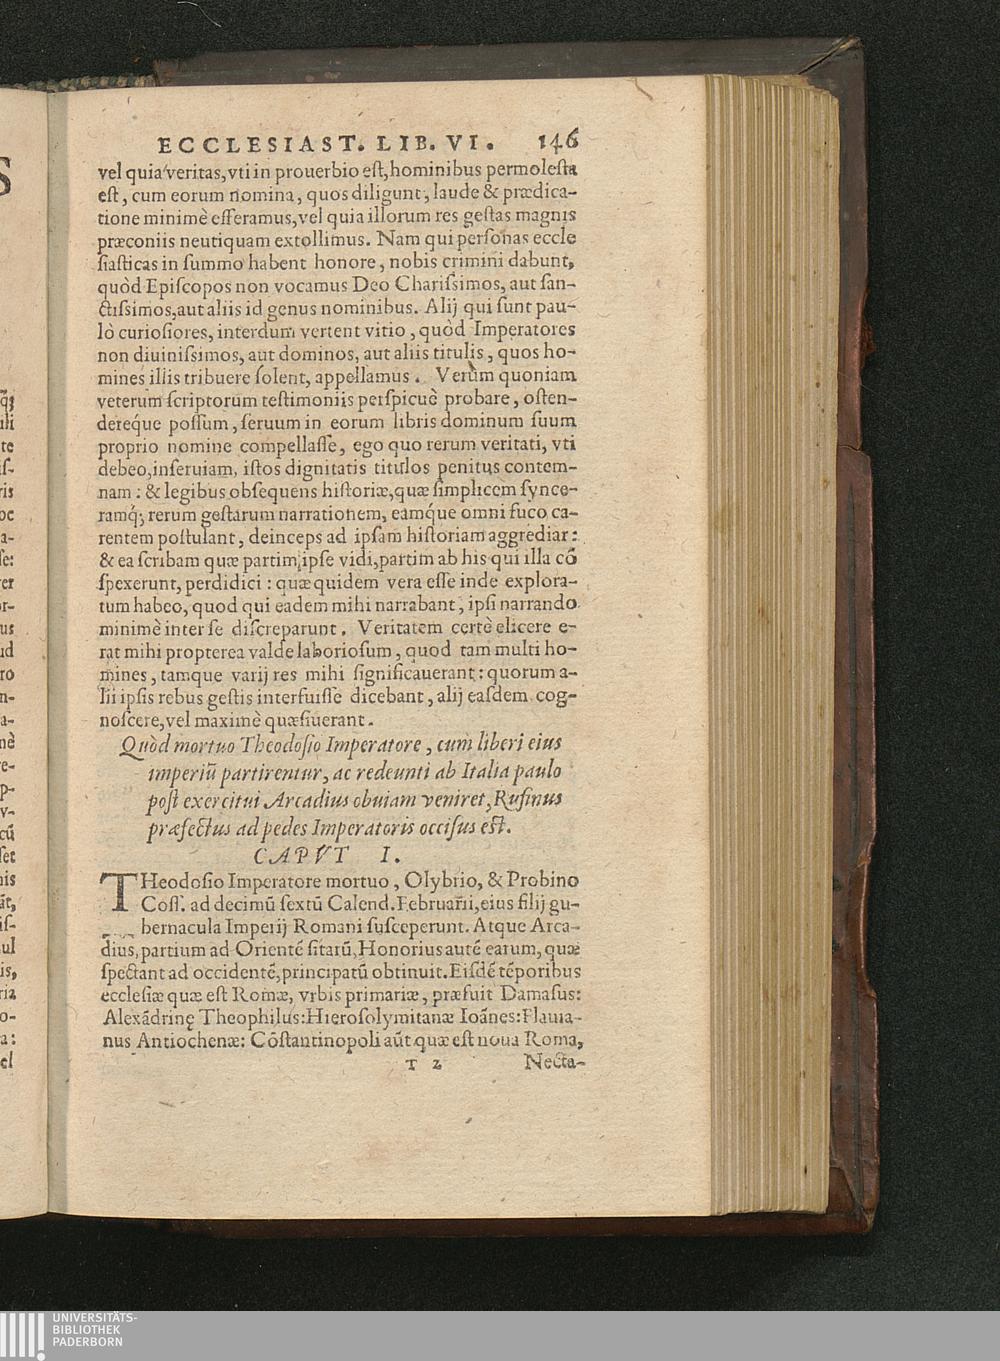 ECCLESIAST. LIB. VI. 146
vel quia veritas, vti in prouerbio eſt, hominibus permoleſta
eſt, cum eorum nomina, quos diligunt, laude & prædica-
tione minimè efferamus, vel quia illorum res geſtas magnis
præconiis neutiquam extollimus. Nam qui perſonas eccle
ſiaſticas in ſummo habent honore, nobis crimini dabunt,
quòd Epiſcopos non vocamus Deo Chariſsimos, aut ſan-
ctiſsimos, aut aliis id genus nominibus. Alij qui ſunt pau-
lò curioſiores, interdum vertent vitio, quòd Imperatores
non diuiniſsimos, aut dominos, aut aliis titulis, quos ho-
mines illis tribuere ſolent, appellamus. Verùm quoniam
veterum ſcriptorum teſtimoniis perſpicuè probare, oſten-
deréque poſſum, ſeruum in eorum libris dominum ſuum
proprio nomine compellaſſe, ego quo rerum veritati, vti
debeo, inſeruiam, iſtos dignitatis titulos penitus contem-
nam: & legibus obſequens hiſtoriæ, quæ ſimplicem ſynce-
ramq́; rerum geſtarum narrationem, eamq́ue omni fuco ca-
rentem poſtulant, deinceps ad ipſam hiſtoriam aggrediar:
& ea ſcribam quæ partim ipſe vidi, partim ab his qui illa cõ
ſpexerunt, perdidici: quæ quidem vera eſſe inde explora-
tum habeo, quod qui eadem mihi narrabant, ipſi narrando
minimè inter ſe diſcreparunt. Veritatem certè elicere e-
rat mihi propterea valde laborioſum, quod tam multi ho-
mines, tamque varij res mihi ſignificauerant: quorum a-
lii ipſis rebus geſtis interfuiſſe dicebant, alij eaſdem cog-
noſcere, vel maximè quæſiuerant.
Quòd mortuo Theodoſio Imperatore, cum liberi eius
imperiũ partirentur, ac redeunti ab Italia paulo
poſt exercitui Arcadius obuiam veniret, Rufinus
præfectus ad pedes Imperatoris occiſus eſt.
CAPVT I.
THeodoſio Imperatore mortuo, Olybrio, & Probino
Coſſ. ad decimũ ſextũ Calend. Februarii, eius filij gu-
bernacula Imperij Romani ſuſceperunt. Atque Arca-
dius, partium ad Orientẽ ſitarũ, Honorius autẽ earum, quæ
ſpectant ad occidentẽ, principatũ obtinuit. Eiſdẽ tẽporibus
eccleſiæ quæ eſt Romæ, vrbis primariæ, præfuit Damaſus:
Alexãdrinę Theophilus: Hieroſolymitanæ Ioãnes: Flauia-
nus Antiochenæ: Cõſtantinopoli aũt quæ eſt noua Roma,
T 2 Necta-
UNIVERSITÄTS-
BIBLIOTHEK
PADERBORN